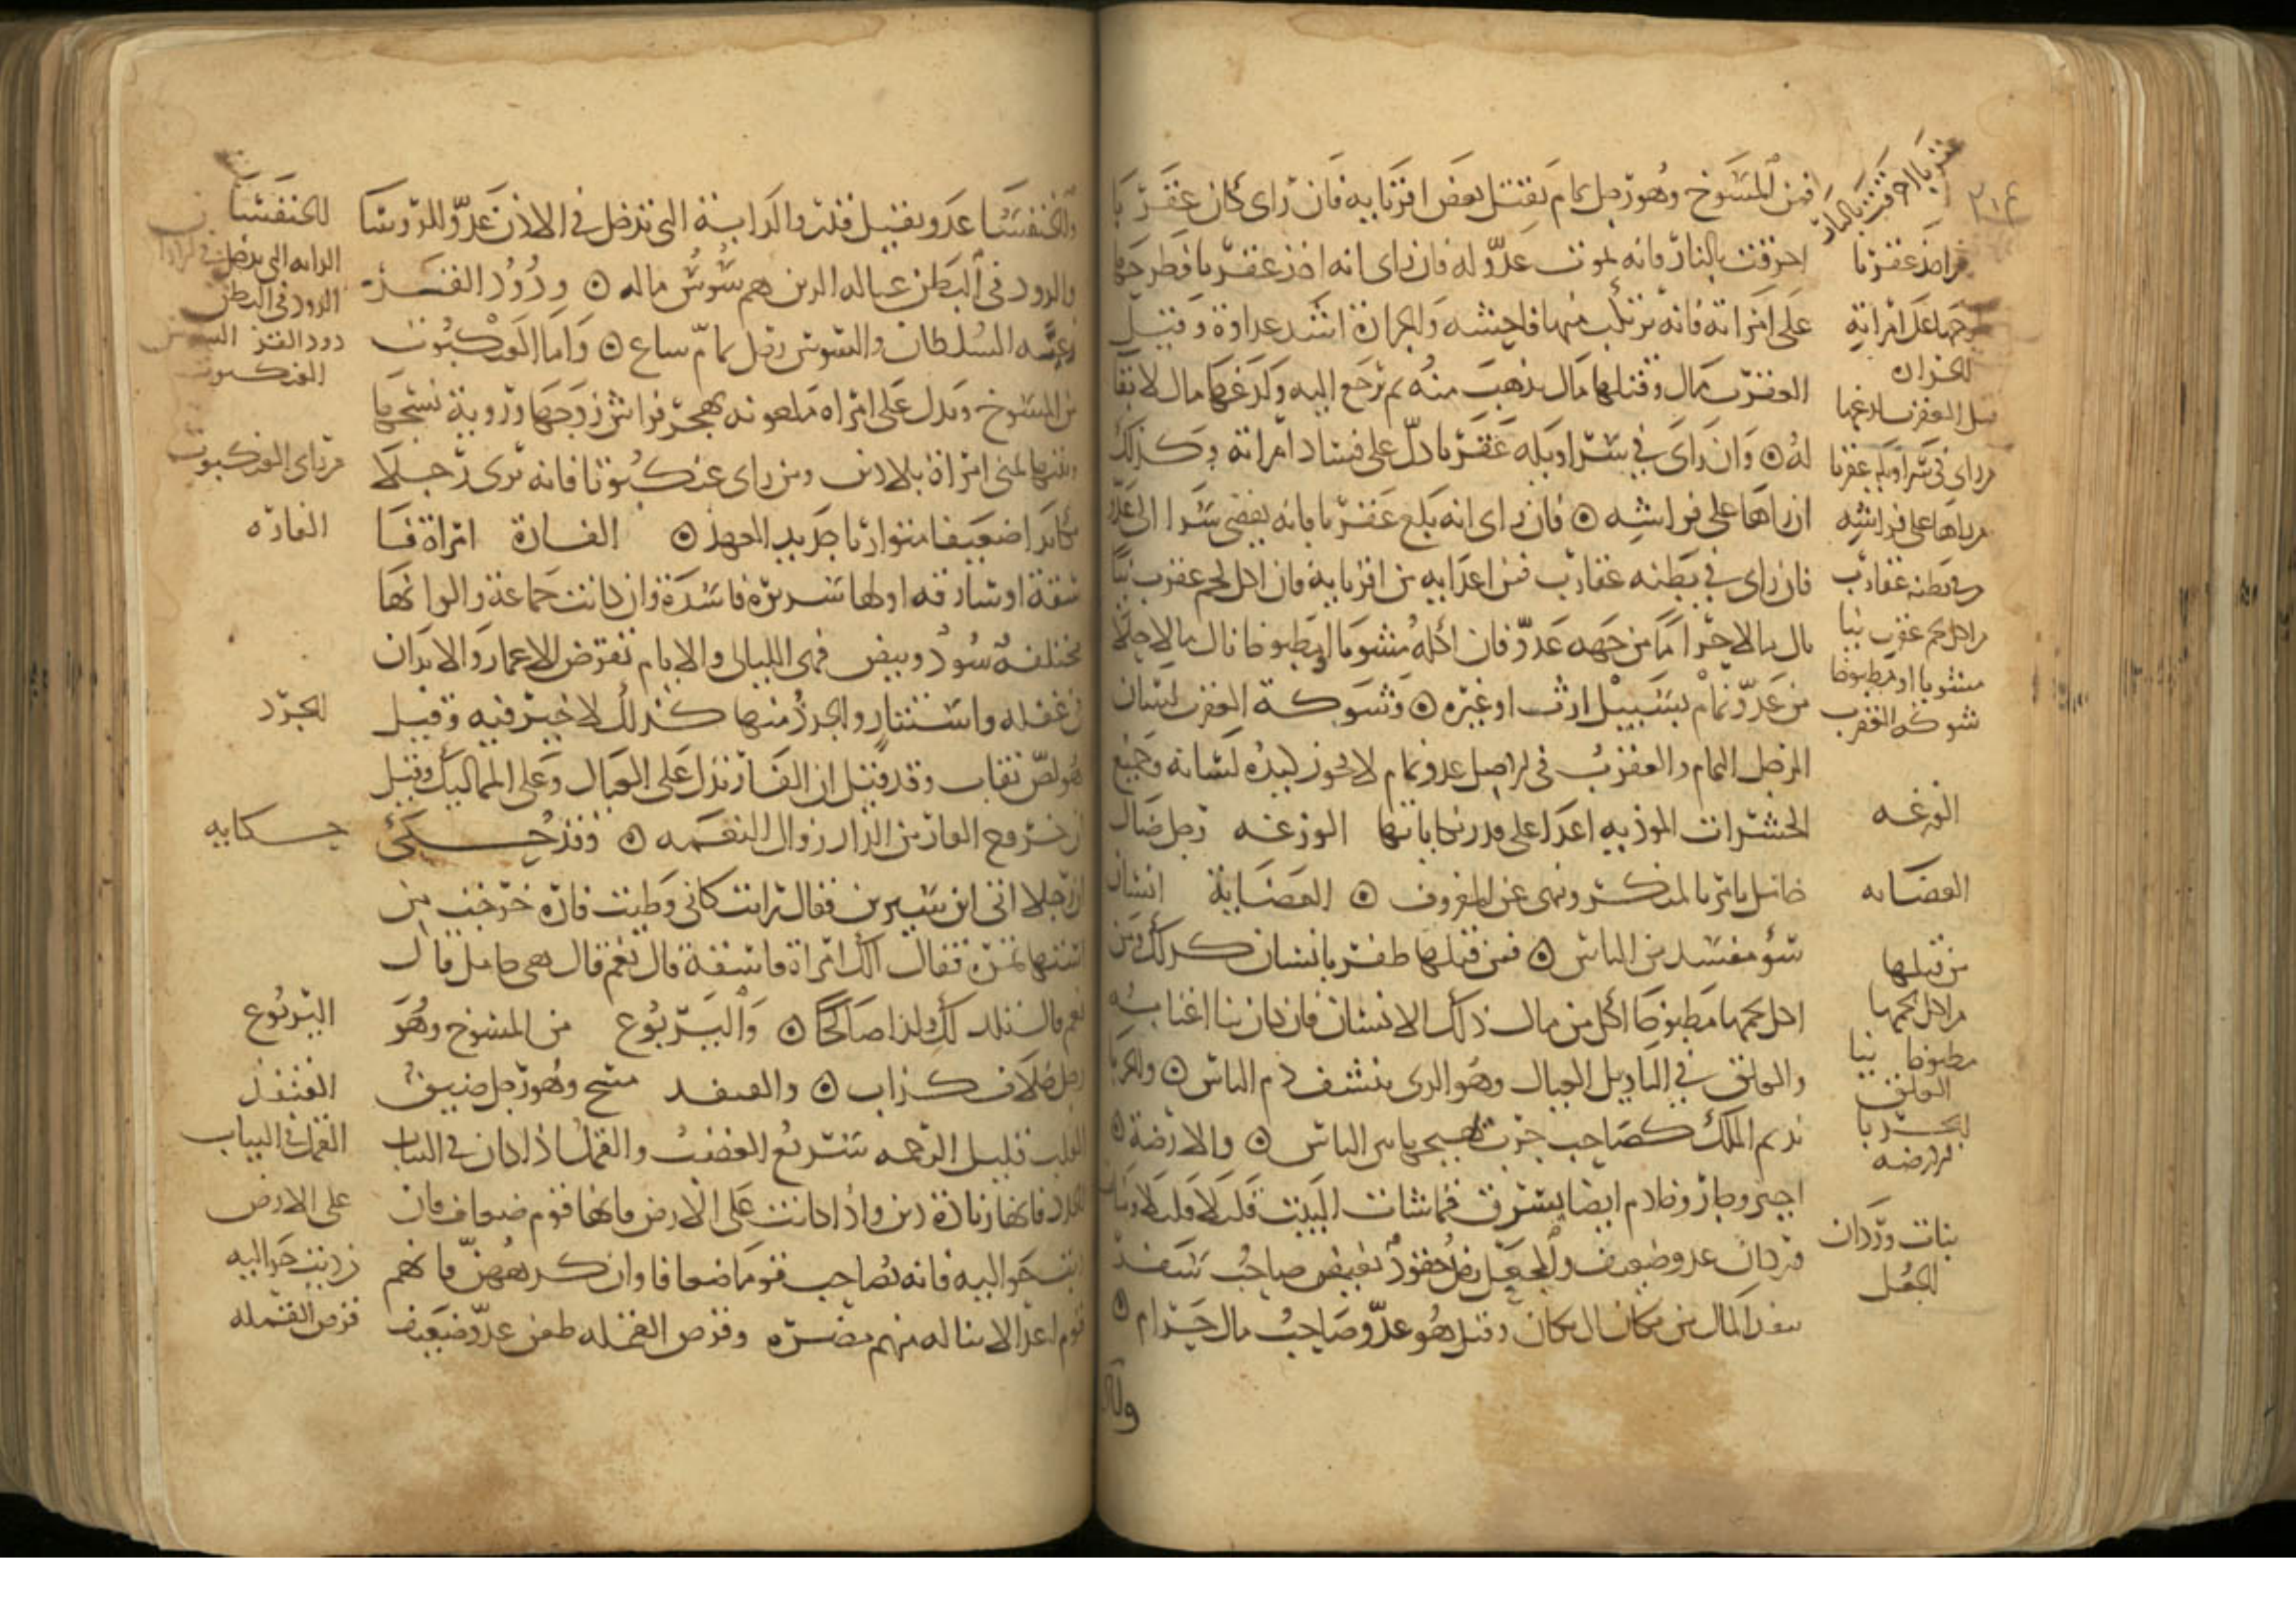 فمن المسوخ وهو رجل نمام يقتل بعض اقربايه فان راى كان عقربا
احرقت بالنار فانه يموت عدو له فان راى انه اخذ عقربا فطرحها
على امراته فانه يرتكب منها فاحشه والجرارة اشد عداوة وقيل
العقرب مال وقتلها مال يذهب منه ثم يرجع اليه ولدغها مال لا بقا
له وان راى في سراويله عقربا دل على فساد امراته وكذلك
ان راها على فراشه فان راى انه بلع عقربا فانه يفضي سرا الى عدو
فان راى في بطنه عقارب فمن اعدايه من اقربايه فان اكل لحم عقرب نيا
نال مالا حراما من جهه عدو فان اكله مشويا او مطبوخا نال مالا حلالا
من عدو نمام بسبيل ارث او غيره وشوكة العقرب لسان
الرجل النمام والعقرب في الاصل عدو نمام لا يحوز لبده لسانه وجميع
الحشرات الموذيه اعدا على قدر نكاياتها الوزغه رجل ضال
خامل يامر بالمنكر وينهى عن المعروف العضاية انسان
سو مفسد بين الناس فمن قتلها ظفر بانسان كذلك ومن
اكل لحمها مطبوخا اكل من مال ذلك الانسان فان كان نيا اغتابه
والعلق في التاويل العيال وهو الدي ينشف دم الناس والحربا
نديم الملك كصاحب حرب يهيجها بين الناس والارضة
اجير وجار وخادم ايضا يسرق قماشات البيت قليلا قليلا وبنات
وردان عدو ضعيف والجعل رجل حقود بغيض صاحب سفر
ينقل المال من مكان الى مكان وقيل هو عدو صاحب مال حرام
وال
عقربا احرقت بالنار
٢١٤
من اخذ عقربا
وطرحها على امراته
الجراره
قتل العقرب لدغها
من راى في سراويله عقربا
من راها على فراشه
من في بطنه عقارب
من اكل لحم عقرب نيا
مشويا او مطبوخا
شوكه العقرب
الوزغه
العضايه
من قتلها
من اكل لحمها
مطبوخا نيا
العلق
الحربا
الارضه
بنات وردان
الجعل
والخنفسا عدو بغيض قذر والدابة التي تدخل في الاذن عدو للروسا
والدود في البطن عياله الدين هم سوس ماله ودود القز
رعيه السلطان والسوس رجل نمام ساع واما العنكبوت
من المسوخ وتدل على امراه ملعونه تهجر فراش زوجها ورؤية نسجها
وبيتها تمنى امراة بلا دين ومن راى عنكبوتا فانه يرى رجلا
كايدا ضعيفا متواريا جديد العهد الفارة امراة فا
سقة او سارقه او لها سريرة فاسدة وان كانت جماعة والوانها
مختلفه سود وبيض فهى الليالى والايام تقرض الاعمار والابدان
في غفله واستتار والجرذ منها كذلك لا خير فيه وقيل
هو لص نقاب وقد قيل ان الفار تدل على العيال وعلى المماليك وقيل
ان خروج الفار من الدار زوال النعمه وقد حكى
ان رجلا اتى ابن سيرين فقال رايت كانى وطيت فارة خرجت من
استها تمرة فقال الك امراة فاسقة قال نعم قال هى حامل قال
نعم قال تلد لك ولدا صالحا واليربوع من المسوخ وهو
رجل حلاف كذاب والقنفد مسخ وهو رجل ضيق
القلب قليل الرحمه سريع الغضب والقمل اذا كان في الثياب
الجدد فانها زيادة دين واذا كانت على الارض فانها قوم ضعاف فان
دبت حواليه فانه يصاحب قوما ضعافا وان كرههن فانهم
قوم اعدا لا يناله منهم مضره وقرص القمله طعن عدو ضعيف
الخنفسا
الدابه التى تدخل في الاذن
الدود في البطن
دود القز السوس
العنكبوت
من راى العنكبوت
الفاره
الجرذ
حكايه
اليربوع
القنفذ
القمل في الثياب
على الارض
ان دبت حواليه
قرص القمله